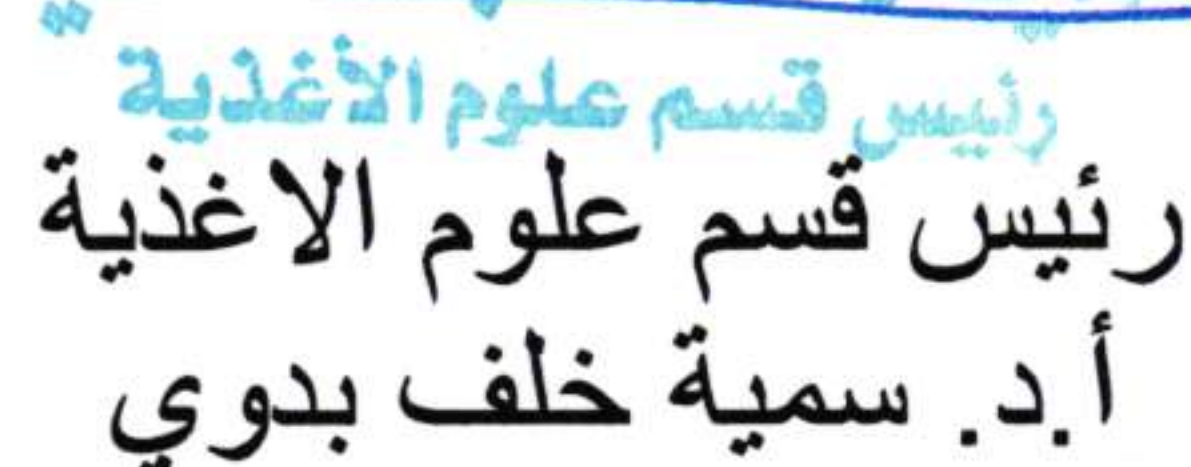 رئيس قسم علوم الأغذية
رئيس قسم علوم الاغذية
أ.د. سمية خلف بدوي